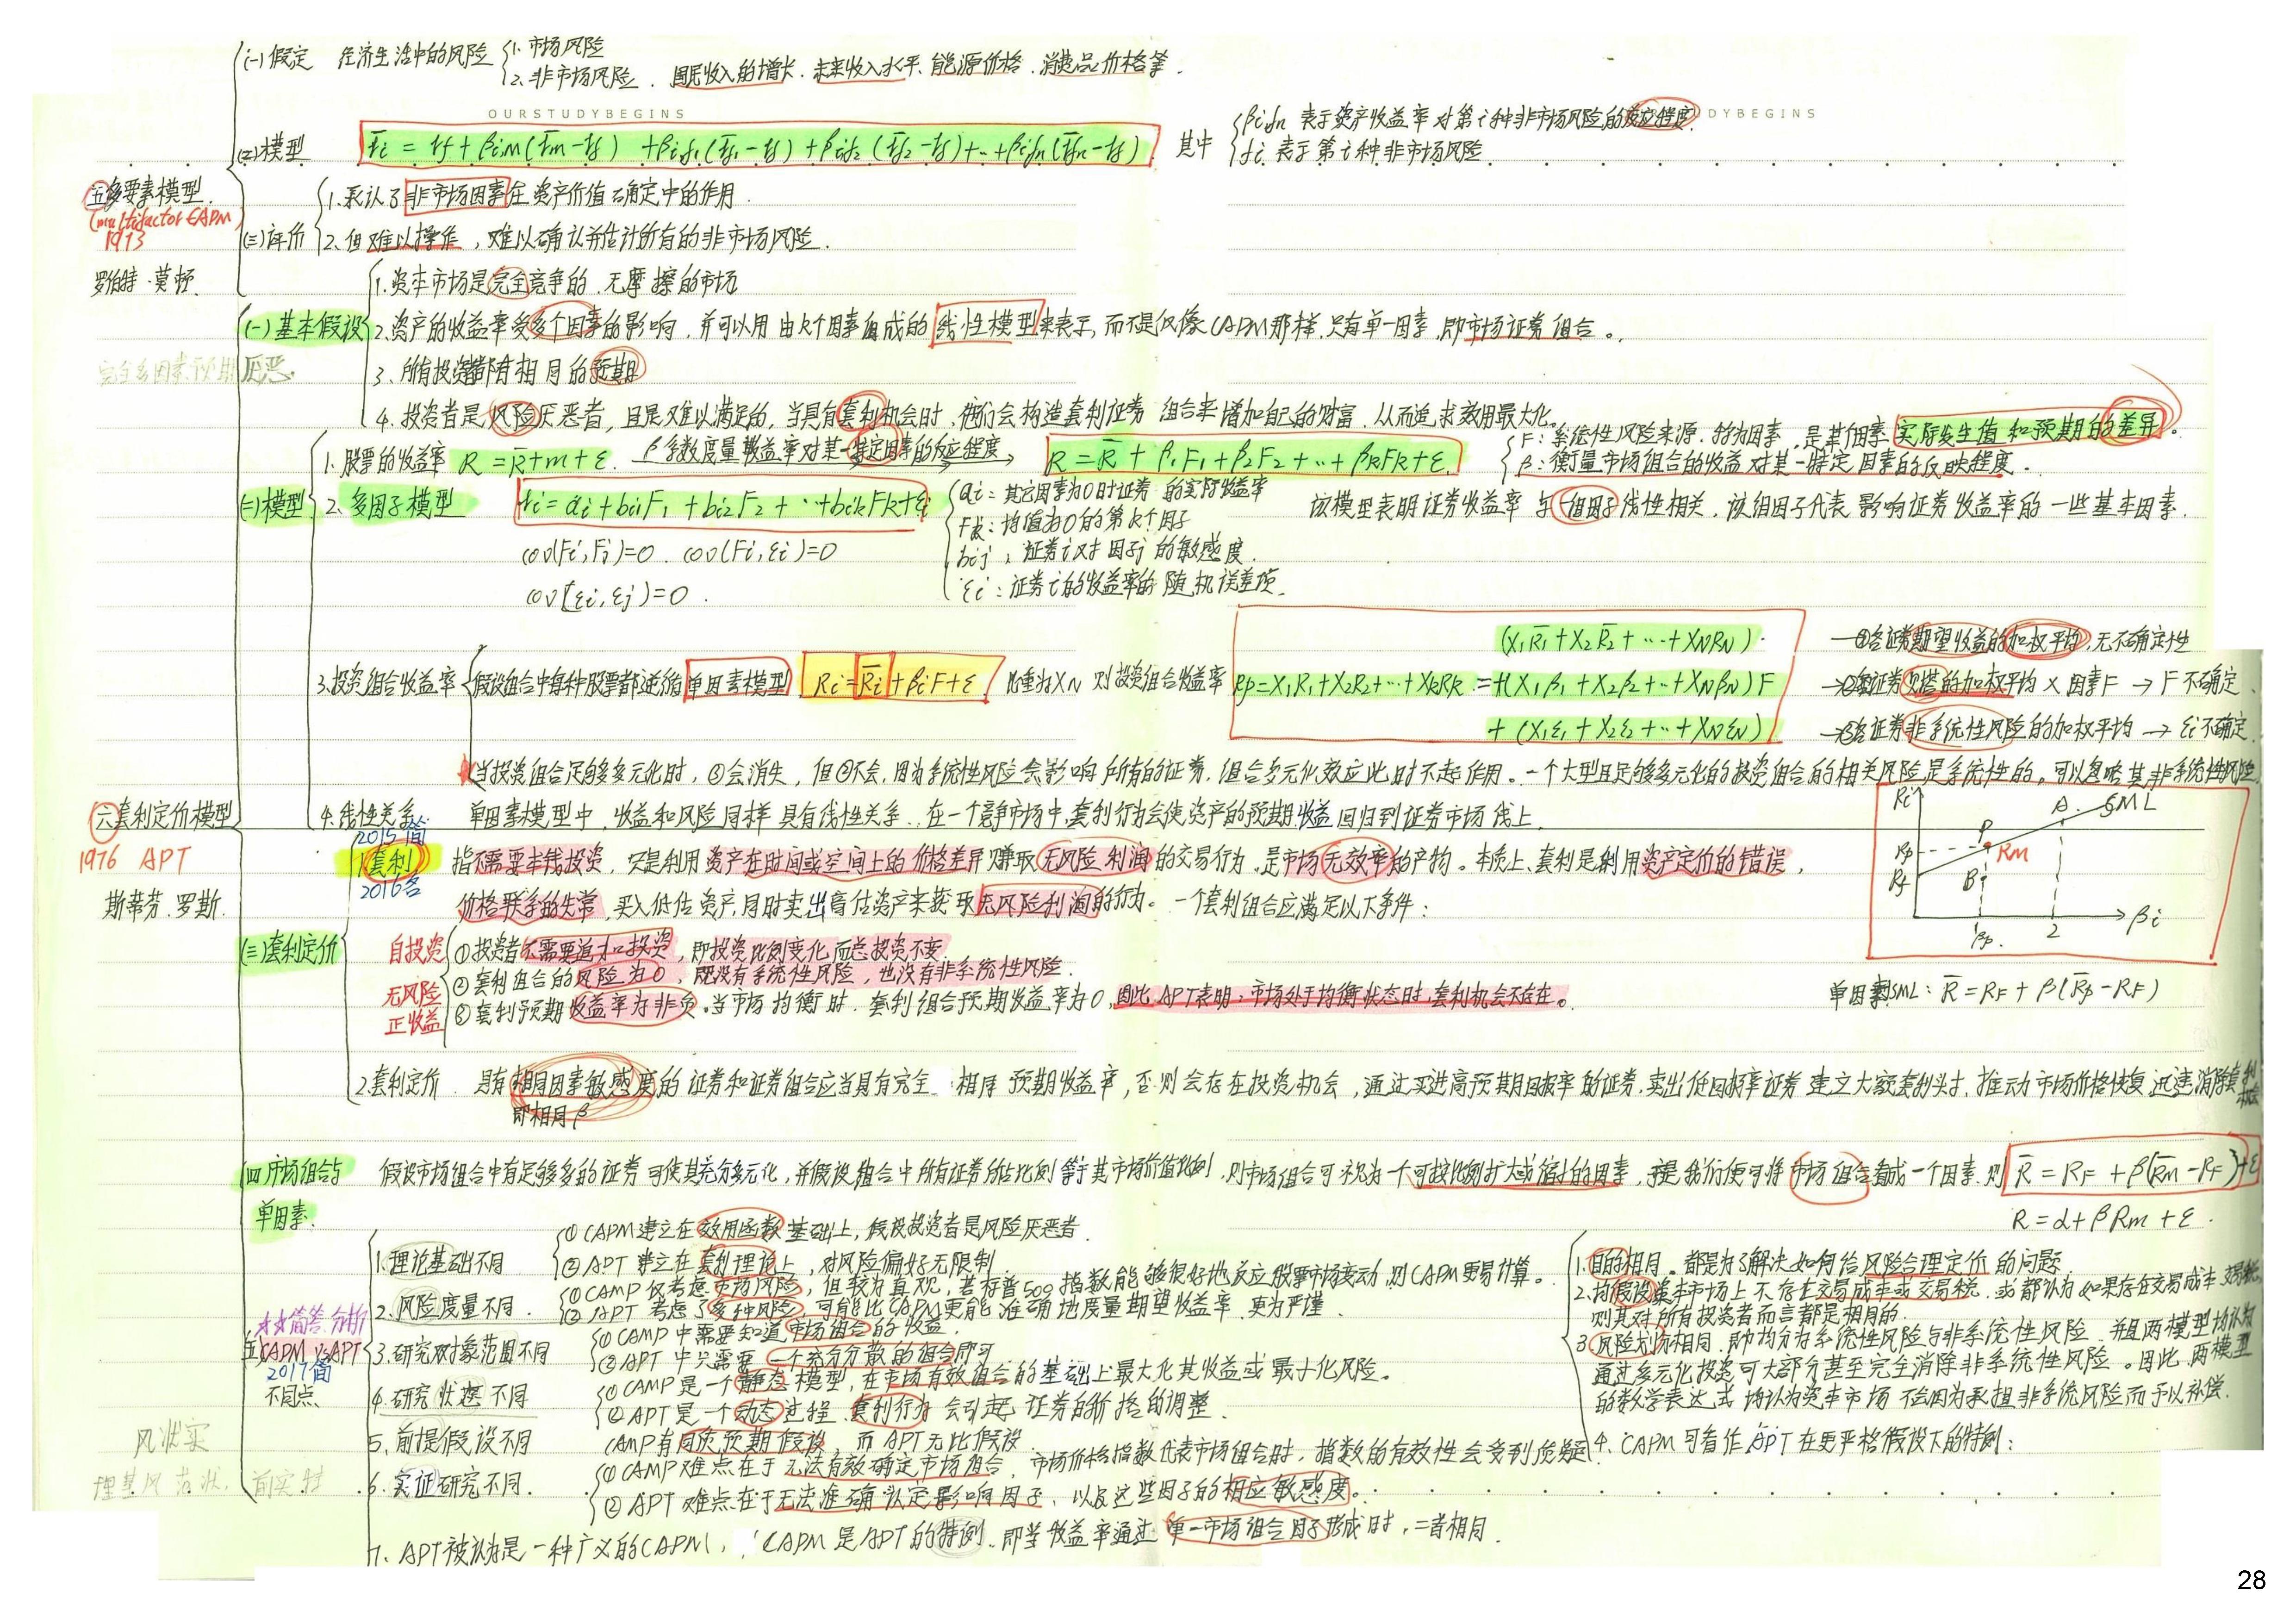 (一)假定 经济生活中的风险 1. 市场风险
2. 非市场风险. 国民收入的增长. 未来收入水平、能源价格. 消费品价格等.
OURSTUDYBEGINS
DYBEGINS
(二)模型 r̄i = rf + βim(r̄m-rf) + βif1(r̄f1-rf) + βif2(r̄f2-rf)+…+βifn(r̄fn-rf) 其中
βifn 表示资产收益率对第i种非市场风险的反应程度.
fi 表示第i种非市场风险
五多要素模型.
(multifactor CAPM)
1973
罗伯特·莫顿.
1. 承认了非市场因素在资产价值确定中的作用.
(三)评价 2. 但难以操作, 难以确认并估计所有的非市场风险.
1. 资本市场是完全竞争的、无摩擦的市场
(一)基本假设 2. 资产的收益率受多个因素的影响, 并可以用由k个因素组成的线性模型来表示, 而不是仅像CAPM那样, 只有单一因素, 即市场证券组合。
完全多因素预期厌恶.
3. 所有投资者都有相同的预期
4. 投资者是风险厌恶者, 且是难以满足的, 当具有套利机会时, 他们会构造套利证券组合来增加自己的财富, 从而追求效用最大化.
(二)模型 1. 股票的收益率 R = R̄+m+ε. β系数度量收益率对某一特定因素的反应程度 → R = R̄ + β1F1+β2F2+…+βkFk+ε.
F: 系统性风险来源. 称为因素, 是某個素实际发生值和预期的差异。
β: 衡量市场组合的收益对某一特定因素的反映程度.
2. 多因子模型 ri = ai + bi1F1 + bi2F2 + …+bikFk+εi
ai: 其它因素为0时证券的实际收益率
Fk: 均值为0的第k个因子
bij: 证券i对因子j的敏感度.
εi: 证券i的收益率的随机误差项.
该模型表明证券收益率与一组因子线性相关, 该组因子代表影响证券收益率的一些基本因素.
cov(Fi,Fj)=0. cov(Fi,εi)=0
cov(εi,εj)=0.
3. 投资组合收益率 假设组合中每种股票都遵循单因素模型 Ri = R̄i + βiF+ε, 比重为XN 则投资组合收益率
(X1R̄1 + X2R̄2 + … + XNRN) —①各证券期望收益的加权平均, 无不确定性
Rp=X1R1+X2R2+…+XkRk = +(X1β1 + X2β2 + … + XNβN)F →②各证券贝塔的加权平均 × 因素F → F不确定.
+ (X1ε1 + X2ε2 + … + XNεN) →③各证券非系统性风险的加权平均 → εi不确定.
当投资组合足够多多元化时, ③会消失, 但②不会, 因为系统性风险会影响所有的证券, 组合多元化效应此时不起作用. 一个大型且足够多元化的投资组合的相关风险是系统性的, 可以忽略其非系统性风险
六套利定价模型
1976 APT
斯蒂芬·罗斯.
4. 线性关系 单因素模型中, 收益和风险同样具有线性关系. 在一个竞争市场中, 套利行为会使资产的预期收益回归到证券市场线上.
Ri A. SML
P Rm
Rp
Rf B
βp. 2 βi
2015简
1套利
2016名
指不需要本钱投资, 只是利用资产在时间或空间上的价格差异赚取无风险利润的交易行为. 是市场无效率的产物. 本质上, 套利是利用资产定价的错误,
价格联系的失常, 买入低估资产, 同时卖出高估资产来获取无风险利润的行为。一个套利组合应满足以下条件:
(三)套利定价
自投资 ①投资者不需要追加投资, 即投资比例变化而总投资不变.
无风险 ②套利组合的风险为0, 既没有系统性风险, 也没有非系统性风险.
正收益 ③套利预期收益率为非负. 当市场均衡时, 套利组合预期收益率为0, 因此APT表明: 市场处于均衡状态时, 套利机会不存在。
单因素SML: R̄ = RF + β(R̄p-RF)
2. 套利定价. 具有相同因素敏感度的证券和证券组合应当具有完全相同预期收益率, 否则会存在投资机会, 通过买进高预期回报率的证券, 卖出低回报率证券建立大家套利头寸, 推动市场价格恢复迅速消除套利机会
即相同β
四市场组合与单因素. 假设市场组合中有足够多的证券可使其充分多元化, 并假设组合中所有证券所占比例等于其市场价值比例, 则市场组合可视为一个可按比例扩大或缩小的因素, 于是我们便可将市场组合看成一个因素. 则 R̄ = RF + β(R̄m-RF)+ε
R = α + βRm + ε.
**简答.分析
五CAPM vs APT
2017简
不同点
1. 理论基础不同 ①CAPM建立在效用函数基础上, 假设投资者是风险厌恶者.
②APT建立在套利理论上, 对风险偏好无限制.
2. 风险度量不同. ①CAMP仅考虑市场风险, 但较为直观, 若标普500指数能够很好地反应股票市场变动, 则CAPM更易计算。
②APT考虑了多种风险, 可能比CAPM更能准确地度量期望收益率, 更为严谨.
3. 研究对象范围不同 ①CAMP中需要知道市场组合的收益.
②APT中只需要一个充分分散的组合即可
4. 研究状态不同 ①CAMP是一个静态模型, 在市场有效组合的基础上最大化其收益或最小化风险。
②APT是一个动态过程. 套利行为会引起证券的价格的调整.
5. 前提假设不同 CAMP有同质预期假设, 而APT无比假设.
6. 实证研究不同. ①CAMP难点在于无法有效确定市场组合, 市场价格指数代表市场组合时, 指数的有效性会受到质疑
②APT难点在于无法准确认定影响因子, 以及这些因子的相应敏感度。
7. APT被认为是一种广义的CAPM, CAPM是APT的特例. 即当收益率通过单一市场组合因子形成时, 二者相同.
1. 目的相同。都是为了解决如何给风险合理定价的问题.
2. 均假设资本市场上不存在交易成本或交易税, 或都认为如果存在交易成本交易税,
则其对所有投资者而言都是相同的.
3. 风险划分相同. 即均分为系统性风险与非系统性风险. 并且两模型均认为
通过多元化投资可大部分甚至完全消除非系统性风险。因此, 两模型
的数学表达式均认为资本市场不会因为承担非系统风险而予以补偿.
4. CAPM可看作APT在更严格假设下的特例;
风状实
理基风范状. 前实特
28